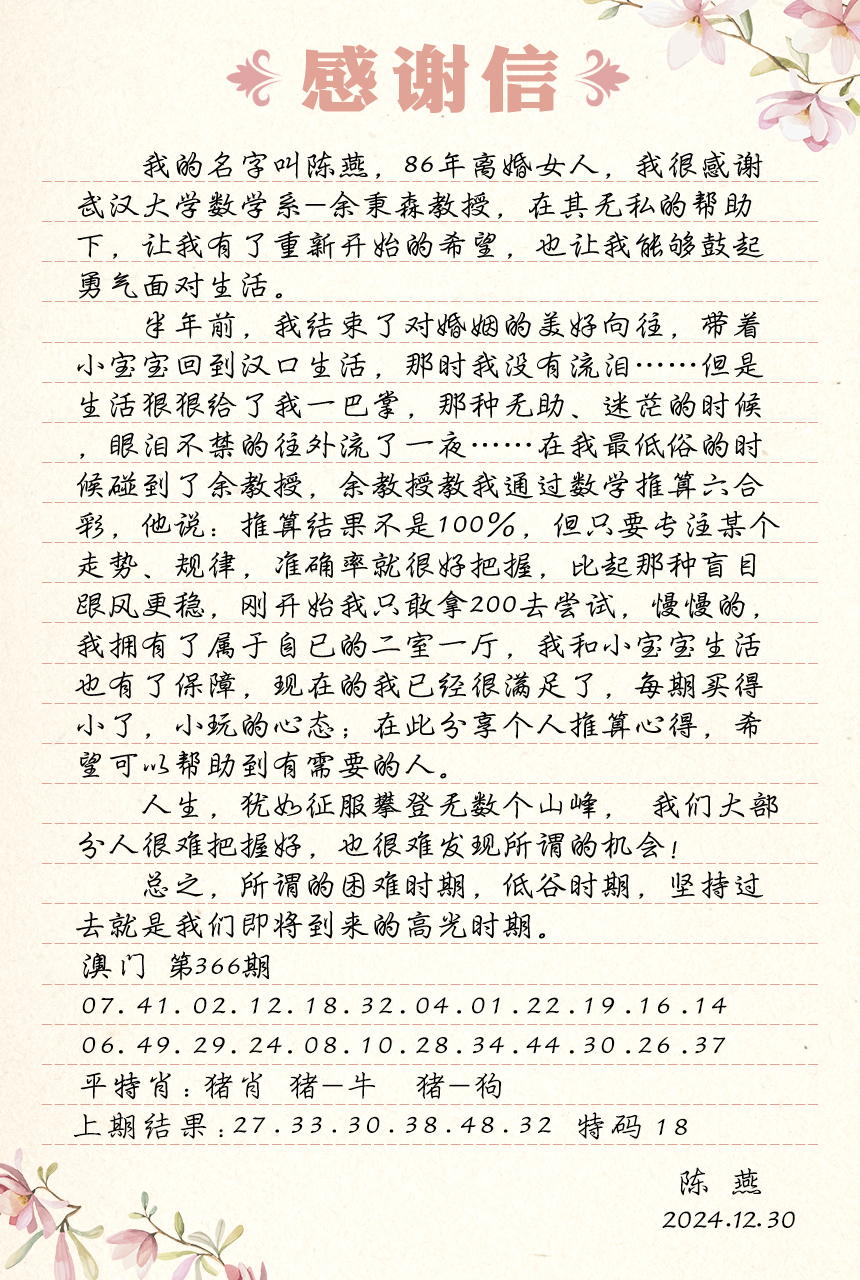 感谢信
我的名字叫陈燕，86年离婚女人，我很感谢
武汉大学数学系—余秉森教授，在其无私的帮助
下，让我有了重新开始的希望，也让我能够鼓起
勇气面对生活。
半年前，我结束了对婚姻的美好向往，带着
小宝宝回到汉口生活，那时我没有流泪……但是
生活狠狠给了我一巴掌，那种无助、迷茫的时候
，眼泪不禁的往外流了一夜……在我最低俗的时
候碰到了余教授，余教授教我通过数学推算六合
彩，他说：推算结果不是100%，但只要专注某个
走势、规律，准确率就很好把握，比起那种盲目
跟风更稳，刚开始我只敢拿200去尝试，慢慢的，
我拥有了属于自已的二室一厅，我和小宝宝生活
也有了保障，现在的我已经很满足了，每期买得
小了，小玩的心态；在此分享个人推算心得，希
望可以帮助到有需要的人。
人生，犹如征服攀登无数个山峰， 我们大部
分人很难把握好，也很难发现所谓的机会！
总之，所谓的困难时期，低谷时期，坚持过
去就是我们即将到来的高光时期。
澳门 第366期
07.41.02.12.18.32.04.01.22.19.16.14
06.49.29.24.08.10.28.34.44.30.26.37
平特肖：猪肖 猪—牛 猪—狗
上期结果：27.33.30.38.48.32 特码 18
陈 燕
2024.12.30